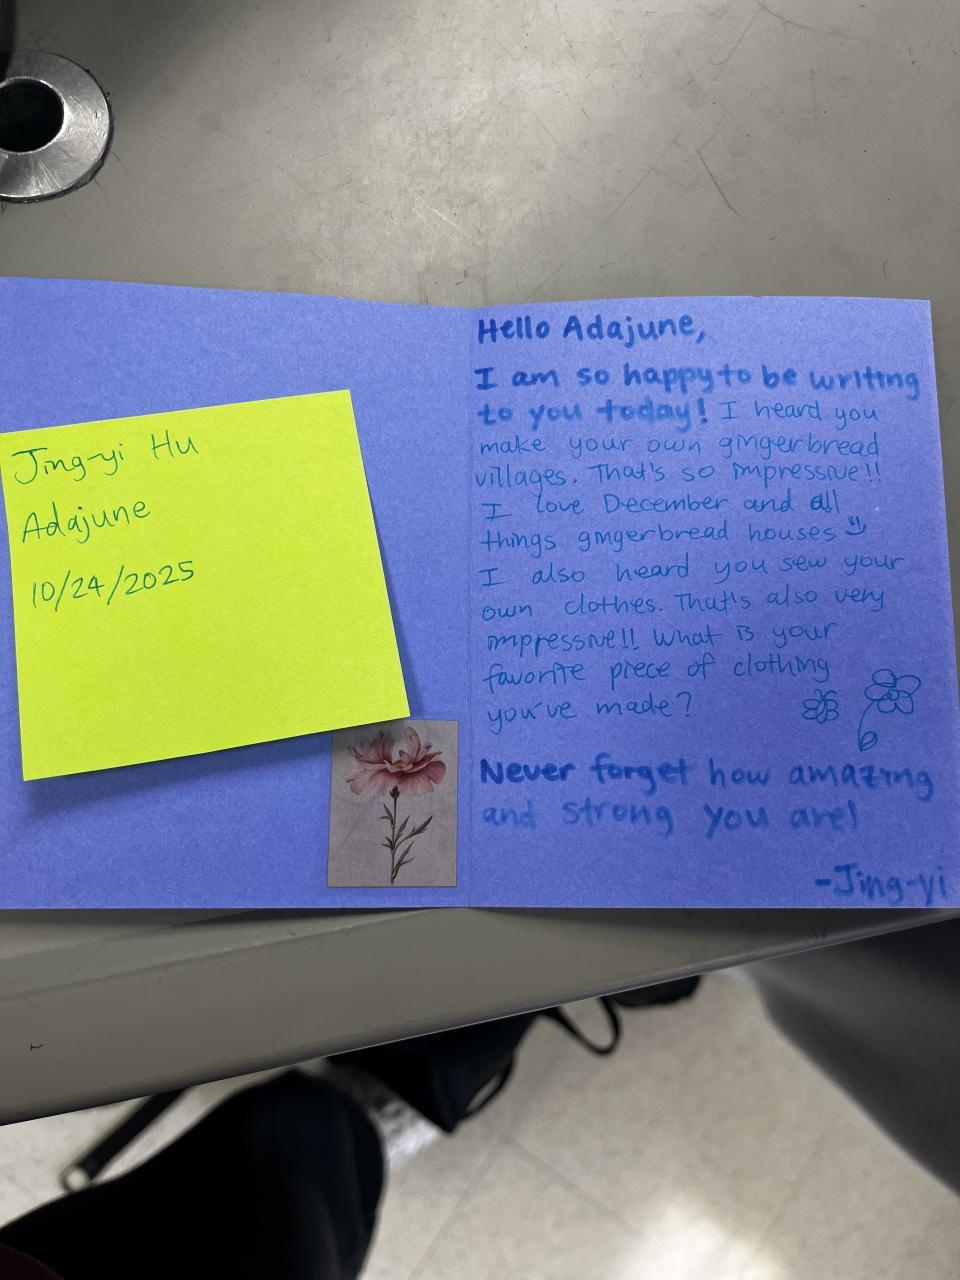 Jing-yi Hu
Adajune
10/24/2025
Hello Adajune,
I am so happy to be writing
to you today! I heard you
make your own gingerbread
villages. That's so impressive!!
I love December and all
things gingerbread houses
I also heard you sew your
own clothes. That's also very
impressive!! What is your
favorite piece of clothing
you've made?
Never forget how amazing
and strong you are!
-Jing-yi